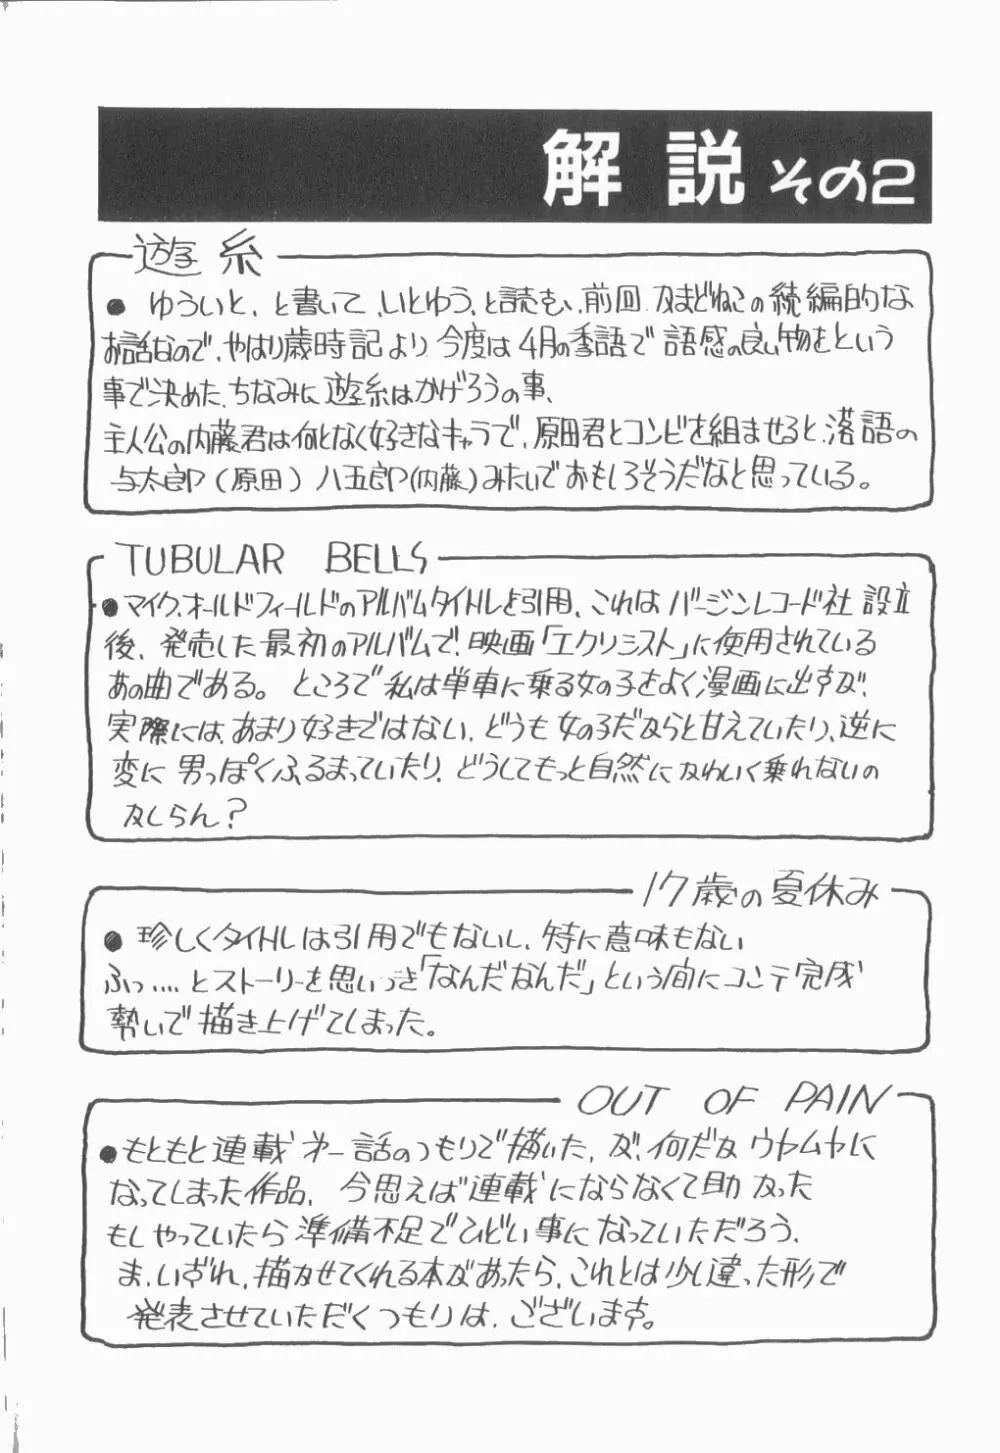 解説 その2
遊糸
● ゆういと、と書いて、いとゆう、と読む、前回、かまどねこの続編的な
お話なので、やはり歳時記より、今度は4月の季語で語感の良い物をという
事で決めた、ちなみに遊糸はかげろうの事、
主人公の内藤君は何となく好きなキャラで、原田君とコンビを組ませると、落語の
与太郎（原田）八五郎（内藤）みたいでおもしろそうだなと思っている。
TUBULAR BELLS
●マイク、オールドフィールドのアルバムタイトルを引用、これはバージンレコード社設立
後、発売した最初のアルバムで、映画「エクソシスト」に使用されている
あの曲である。ところで私は単車に乗る女の子をよく漫画に出すが、
実際には、あまり好きではない、どうも女の子だからと甘えていたり、逆に
変に男っぽくふるまっていたり、どうしてもっと自然にかわいく乗れないの
かしらん？
17歳の夏休み
● 珍しくタイトルは引用でもないし、特に意味もない
ふっ‥‥とストーリーを思いつき「なんだなんだ」という間にコンテ完成
勢いで描き上げてしまった。
OUT OF PAIN
●もともと連載オ一話のつもりで描いた、が、何だかウヤムヤに
なってしまった作品、今思えば連載にならなくて助かった
もしやっていたら準備不足でひどい事になっていただろう、
ま、いずれ、描かせてくれる本があったら、これとは少し違った形で
発表させていただくつもりは、ございます。